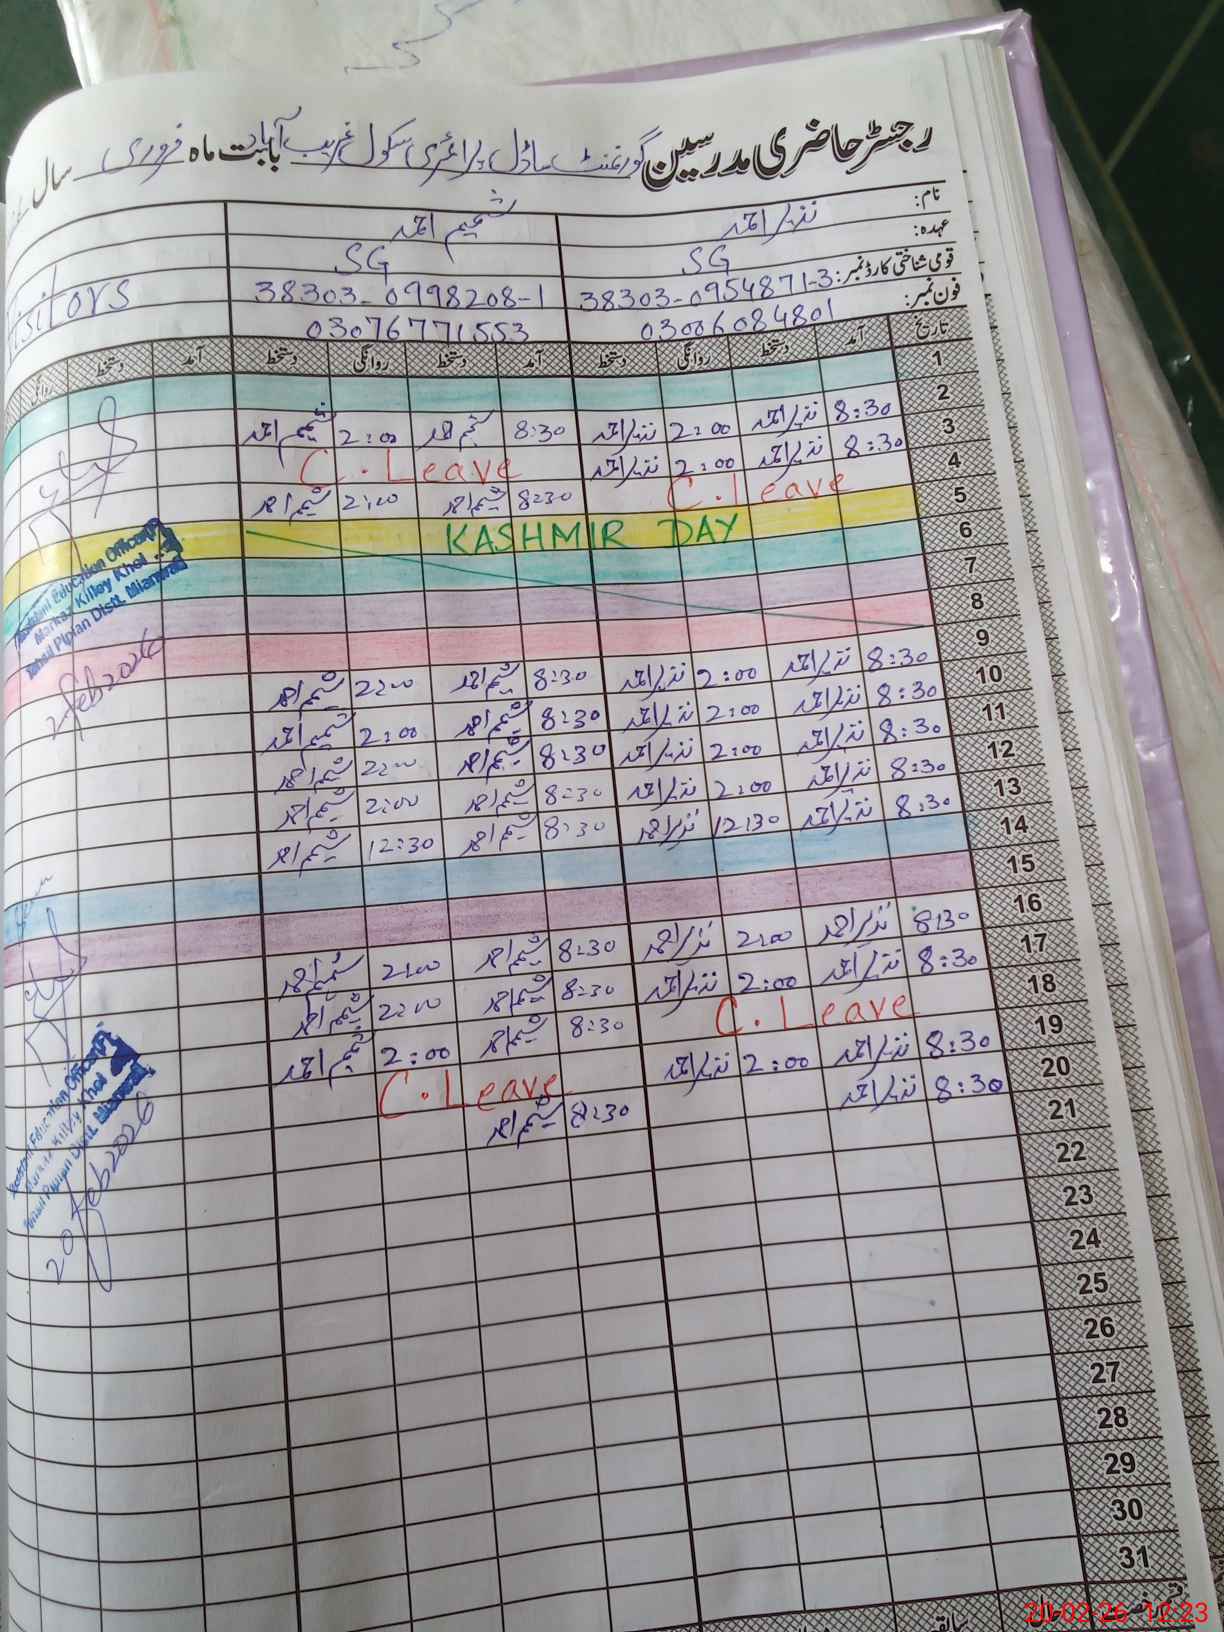 رجسٹر حاضری مدرسین گورنمنٹ ماڈل پرائمری سکول غریب آباد بابت ماہ فروری سال
نام: نذیر احمد شمیم احمد
عہدہ: SG SG
قومی شناختی کارڈ نمبر: 38303-0954871-3 38303-0998208-1
فون نمبر: 03006084801 03076771553
Visitors
تاریخ آمد دستخط روانگی دستخط آمد دستخط روانگی دستخط آمد دستخط روانگی
1
2 8:30 نذیر احمد 2:00 نذیر احمد 8:30 شمیم احمد 2:00 شمیم احمد
3 8:30 نذیر احمد 2:00 نذیر احمد C. Leave
4 C. Leave 8:30 شمیم احمد 2:00 شمیم احمد
5 KASHMIR DAY
6
7
8
9 8:30 نذیر احمد 2:00 نذیر احمد 8:30 شمیم احمد 2:00 شمیم احمد
10 8:30 نذیر احمد 2:00 نذیر احمد 8:30 شمیم احمد 2:00 شمیم احمد
11 8:30 نذیر احمد 2:00 نذیر احمد 8:30 شمیم احمد 2:00 شمیم احمد
12 8:30 نذیر احمد 2:00 نذیر احمد 8:30 شمیم احمد 2:00 شمیم احمد
13 8:30 نذیر احمد 12:30 نذیر احمد 8:30 شمیم احمد 12:30 شمیم احمد
14
15
16 8:30 نذیر احمد 2:00 نذیر احمد 8:30 شمیم احمد 2:00 شمیم احمد
17 8:30 نذیر احمد 2:00 نذیر احمد 8:30 شمیم احمد 2:00 شمیم احمد
18 C. Leave 8:30 شمیم احمد 2:00 شمیم احمد
19 8:30 نذیر احمد 2:00 نذیر احمد C. Leave
20 8:30 نذیر احمد 8:30 شمیم احمد
21
22
23
24
25
26
27
28
29
30
31
Assistant Education Officer
Markaz Killoy Khol
Tehsil Piplan Distt. Mianwali
Feb 2026
Assistant Education Officer
Markaz Killoy Khol
Tehsil Piplan Distt. Mianwali
20 Feb 2026
سابقہ
20-02-26 12:23